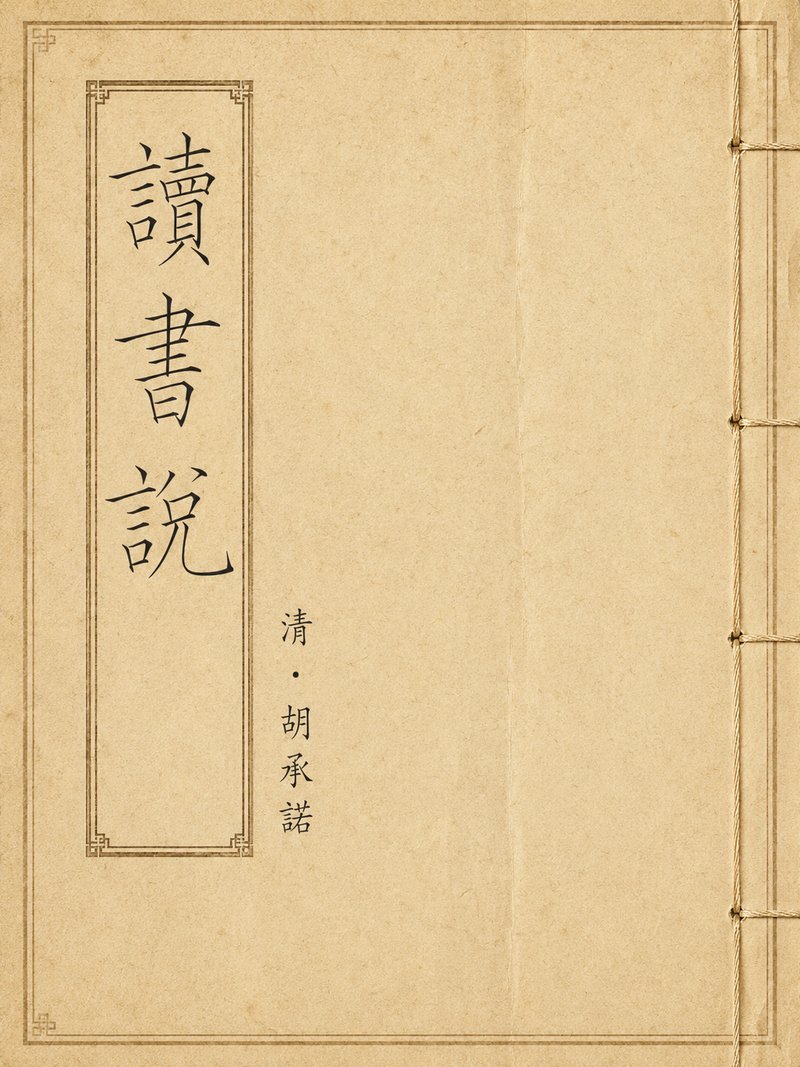 讀書說
清・胡承諾